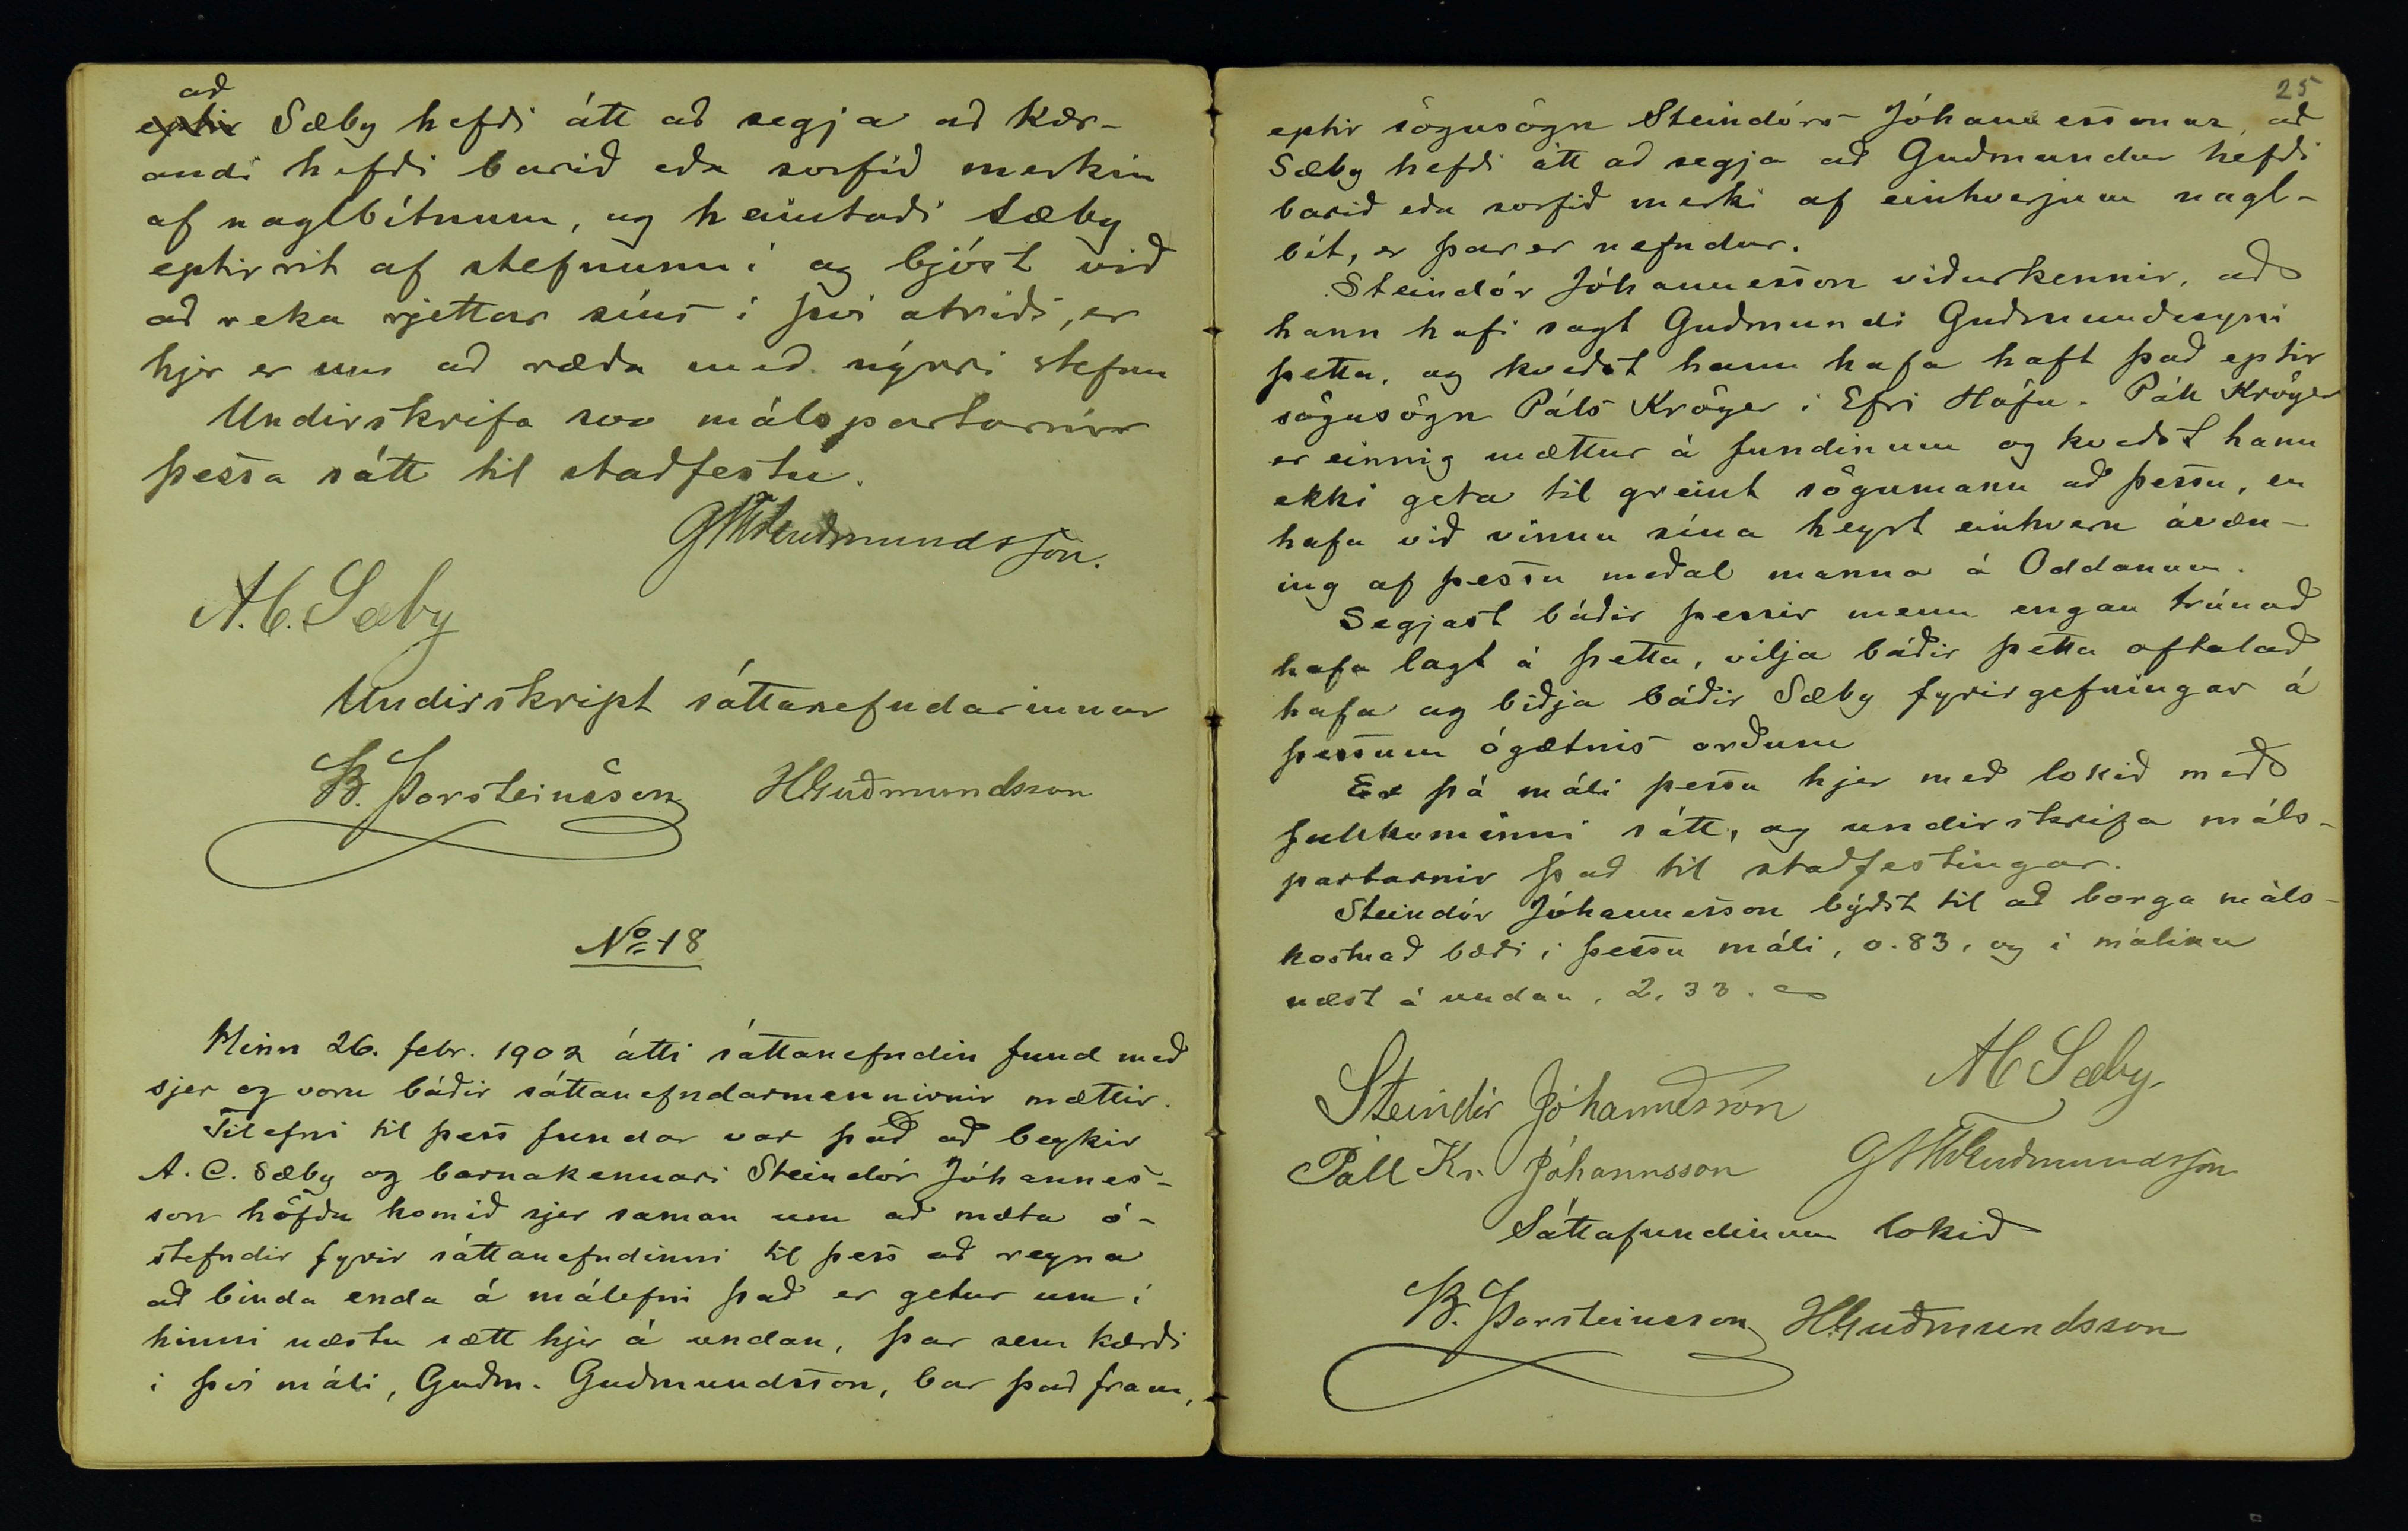 að
eptir Sæby hefði átt að segja að kær-
andi hefði barið eða sorfið merkin
af naglbítnum, og heimtaði Sæby
eptirrit af stefnunni og bjóst við
að reka rjettar síns í því atriði, er
hjer er um að ræða með nýrri stefnu
Undirskrifa svo málspartarnir
þessa sátt til staðfestu.
GMGuðmundsson.
A.C. Sæby
Undirskript sáttanefndarinnar
B. Þorsteinsson HGuðmundsson
No 18
Hinn 26. febr. 1902 átti sáttanefndin fund með
sjer og voru báðir sáttanefndarmennirnir mættir.
Tilefni til þess fundar var það að beykir
A. C. Sæby og barnakennari Steindór Jóhannes-
son höfðu komið sjer saman um að mæta ó-
stefndir fyrir sáttanefndinni til þess að reyna
að binda enda á málefni það er getur um í
hinni næstu sætt hjer á undan, þar sem kærði
í því máli, Guðm. Guðmundsson, bar það fram,
25
eptir sögusögn Steindórs Jóhannessonar, að
Sæby hefði átt að segja að Guðmundur hefði
barið eða sorfið merki af einhverjum nagl-
bít, er þar er nefndur.
Steindór Jóhannesson viðurkennir, að
hann hafi sagt Guðmundi Guðmundssyni
þetta, og kveðst hann hafa haft það eptir
sögusögn Páls Kröyer í Efri Höfn. Páll Kröyer
er einnig mættur á fundinum og kveðst hann
ekki geta til greint sögumann að þessu, en
hafa við vinnu sína heyrt einhvern ávæn-
ing af þessu meðal manna á Oddanum.
Segjast báðir þessir menn engan trúnað
hafa lagt á þetta, vilja báðir þetta aftalað
hafa og biðja báðir Sæby fyrirgefningar á
þessum ógætnis orðum
Er þá máli þessu hjer með lokið með
fullkominni sátt, og undirskrifa máls-
partarnir það til staðfestingar.
Steindór Jóhannesson býðst til að borga máls-
kostnað bæði í þessu máli, 0.83, og í málinu
næst á undan, 2,33.
AC Sæby
Steindór Jóhannesson
Páll Kr. Jóhannsson GMGuðmundsson
Sáttafundinum lokið
B. Þorsteinsson HGuðmundsson